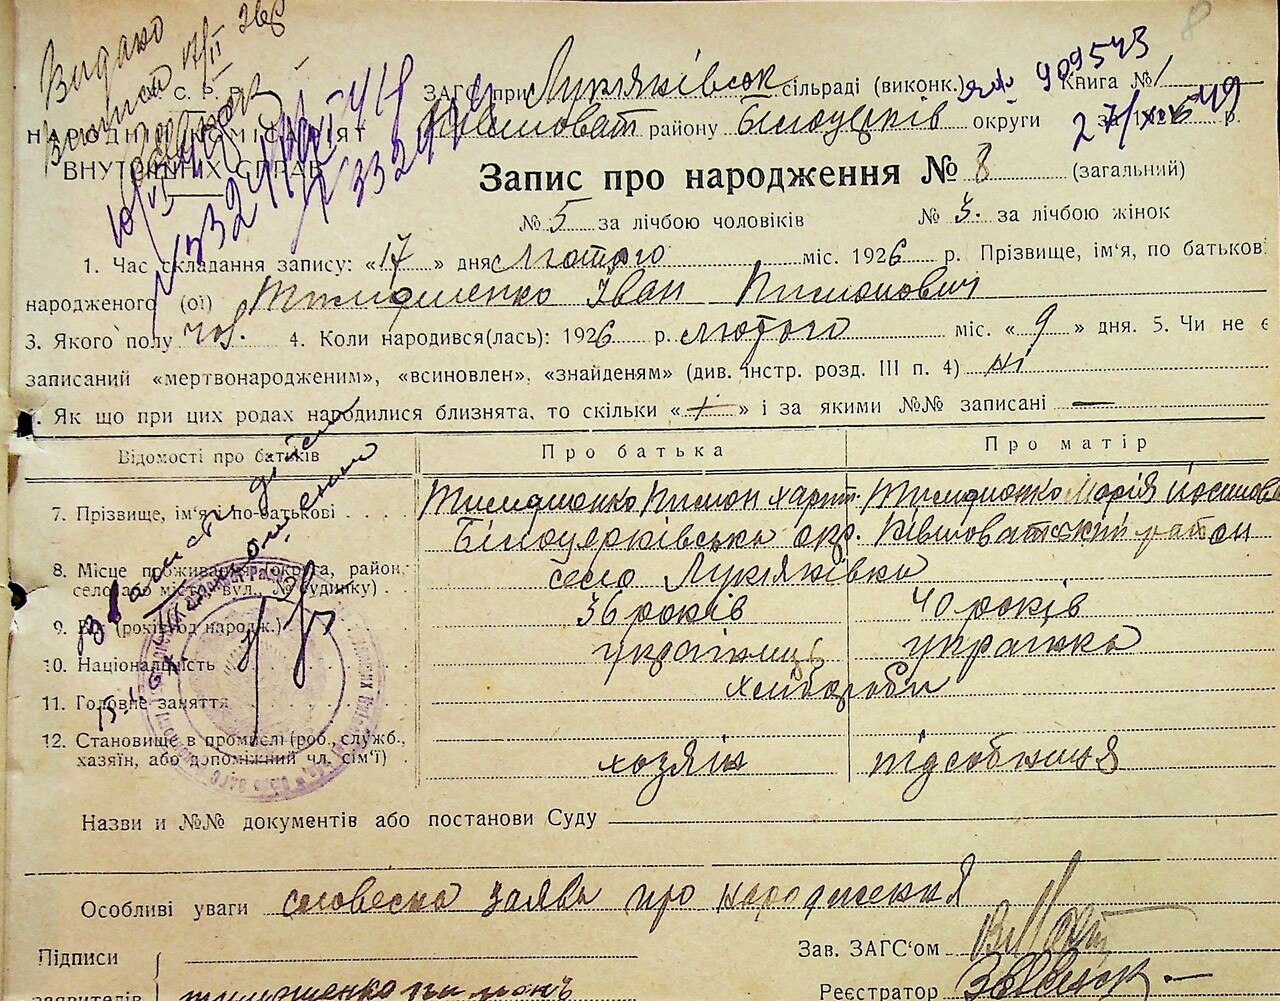 Видано
С. Р. Р.
НАРОДНІЙ КОМІСАРІЯТ
ВНУТРІШНІХ СПРАВ
ЗАГС при Лук'янківськ сільраді (виконк.)
909543
Книга № 1
Ківшоват району Білоцерків округи за 1926 р.
27/XII 49
8
Запис про народження № 8 (загальний)
№ 5 за лічбою чоловіків № 3. за лічбою жінок
1. Час складання запису: «17» дня лютого міс. 1926 р. Прізвище, ім'я, по батькові
народженого (ої) Тимошенко Іван Пимонович
3. Якого полу чол. 4. Коли народився(лась): 1926 р. лютого міс. «9» дня. 5. Чи не є
записаний «мертвонародженим», «всиновлен», «знайденям» (див. інстр. розд. III п. 4) ні
Як що при цих родах народилися близнята, то скільки « » і за якими №№ записані —
Відомості про батиків Про батька Про матір
7. Прізвище, ім'я і по-батькові Тимошенко Пимон Харит. Тимошенко Марія Йосипов
Білоцерківська окр. Ківшоватський район
8. Місце проживання (округа, район, село або місто, вул., № будинку) село Лук'янківка
9. Вік (років од народж.) 36 років 40 років
10. Національність українец українка
11. Головне заняття хлібороби
12. Становище в промислі (роб., службб., хазяїн, або допоміжний чл. сім'ї) хозяїн підсобниця
Назви и №№ документів або постанови Суду
Особливі уваги словесна заява про народження
Підписи
Зав. ЗАГС'ом
заявителів Тимошенко Пимонъ
Реєстратор